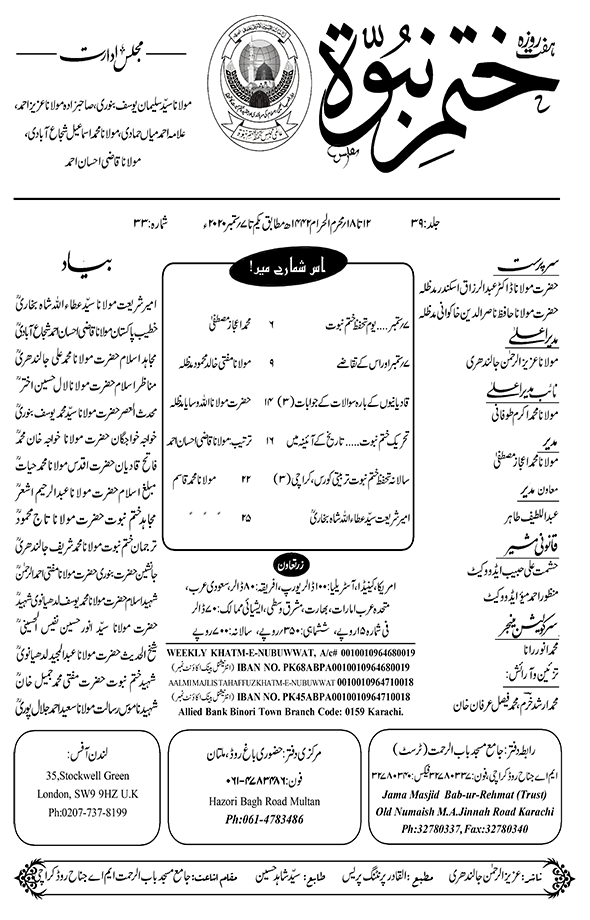 ہفت روزہ
ختم نبوۃ
مجلس ادارت
مولانا سید سلیمان یوسف بنوری، صاحبزادہ مولانا عزیز احمد،
علامہ احمد میاں حمادی، مولانا محمد اسماعیل شجاع آبادی،
مولانا قاضی احسان احمد
جلد: ۳۹
۱۲ تا ۱۸ محرم الحرام ۱۴۴۲ھ مطابق یکم تا ۷ ستمبر ۲۰۲۰ء
شمارہ: ۳۳
سرپرست
حضرت مولانا ڈاکٹر عبدالرزاق اسکندر مدظلہ
حضرت مولانا حافظ ناصر الدین خاکوانی مدظلہ
مدیر اعلیٰ
مولانا عزیز الرحمٰن جالندھری
نائب مدیر اعلیٰ
مولانا محمد اکرم طوفانی
مدیر
مولانا محمد اعجاز مصطفیٰ
معاون مدیر
عبداللطیف طاہر
قانونی مشیر
حشمت علی حبیب ایڈووکیٹ
منظور احمد میؤ ایڈووکیٹ
سرکولیشن منیجر
محمد انور رانا
تزئین و آرائش:
محمد ارشد خرم، محمد فیصل عرفان خان
اس شمارے میں!
۷ ستمبر.... یوم تحفظ ختم نبوت ۶ محمد اعجاز مصطفیٰ
۷ ستمبر اور اس کے تقاضے ۹ مولانا مفتی خالد محمود مدظلہ
قادیانیوں کے بارہ سوالات کے جوابات (۳) ۱۴ حضرت مولانا اللہ وسایا مدظلہ
تحریک ختم نبوت..... تاریخ کے آئینہ میں ۱۶ ترتیب: مولانا قاضی احسان احمد
سالانہ تحفظ ختم نبوت تربیتی کورس، کراچی (۳) ۲۲ مولانا محمد قاسم
امیر شریعت سید عطاء اللہ شاہ بخاریؒ ۲۵ ″ ″ ″
زر تعاون
امریکا، کینیڈا، آسٹریلیا: ۱۰۰ ڈالر یورپ، افریقہ: ۸۰ ڈالر سعودی عرب،
متحدہ عرب امارات، بھارت، مشرق وسطیٰ، ایشیائی ممالک: ۷۰ ڈالر
فی شمارہ ۱۵ روپے، ششماہی: ۳۵۰ روپے، سالانہ: ۷۰۰ روپے
WEEKLY KHATM-E-NUBUWWAT, A/c# 0010010964680019
IBAN NO. PK68ABPA0010010964680019 (انٹرنیشنل بینک اکاؤنٹ نمبر)
AALMI MAJLIS TAHAFFUZ KHATM-E-NUBUWWAT 0010010964710018
IBAN NO. PK45ABPA0010010964710018 (انٹرنیشنل بینک اکاؤنٹ نمبر)
Allied Bank Binori Town Branch Code: 0159 Karachi.
بیاد
امیر شریعت مولانا سید عطاء اللہ شاہ بخاریؒ
خطیب پاکستان مولانا قاضی احسان احمد شجاع آبادیؒ
مجاہد اسلام حضرت مولانا محمد علی جالندھریؒ
مناظر اسلام حضرت مولانا لال حسین اخترؒ
محدث العصر حضرت مولانا سید محمد یوسف بنوریؒ
خواجہ خواجگان حضرت مولانا خواجہ خان محمدؒ
فاتح قادیان حضرت اقدس مولانا محمد حیاتؒ
مبلغ اسلام حضرت مولانا عبدالرحیم اشعرؒ
مجاہد ختم نبوت حضرت مولانا تاج محمودؒ
ترجمان ختم نبوت مولانا محمد شریف جالندھریؒ
جانشین حضرت بنوری حضرت مولانا مفتی احمد الرحمٰنؒ
شہید اسلام حضرت مولانا محمد یوسف لدھیانوی شہیدؒ
حضرت مولانا سید انور حسین نفیس الحسینیؒ
شیخ الحدیث حضرت مولانا عبدالمجید لدھیانویؒ
شہید ختم نبوت حضرت مفتی محمد جمیل خانؒ
شہید ناموس رسالت مولانا سعید احمد جلال پوریؒ
رابطہ دفتر: جامع مسجد باب الرحمت (ٹرسٹ)
ایم اے جناح روڈ کراچی، فون: ۳۲۷۸۰۳۳۷ فیکس: ۳۲۷۸۰۳۴۰
Jama Masjid Bab-ur-Rehmat (Trust)
Old Numaish M.A.Jinnah Road Karachi
Ph:32780337, Fax:32780340
مرکزی دفتر: حضوری باغ روڈ، ملتان
فون: ۰۶۱-۴۷۸۳۴۸۶
Hazori Bagh Road Multan
Ph:061-4783486
لندن آفس:
35,Stockwell Green
London, SW9 9HZ U.K
Ph:0207-737-8199
ناشر: عزیز الرحمٰن جالندھری مطبع: القادر پرنٹنگ پریس طابع: سید شاہد حسین مقام اشاعت: جامع مسجد باب الرحمت ایم اے جناح روڈ کراچی